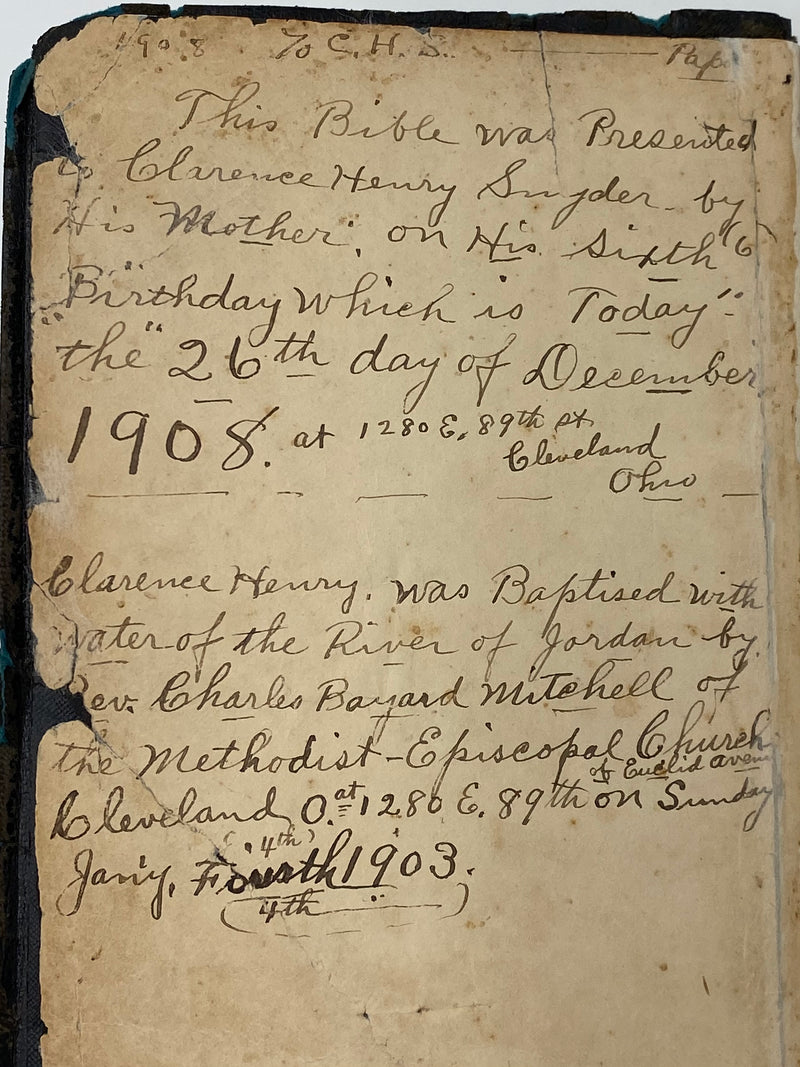 1908 To C. H. S. — Papa
This Bible was Presented
to Clarence Henry Snyder - by
His Mother, on His Sixth (6)
"Birthday which is Today":
"the" 26th day of December
1908. at 1280 E. 89th st.
Cleveland
Ohio
Clarence Henry. was Baptised with
water of the River of Jordan by
Rev. Charles Bayard Mitchell of
the Methodist-Episcopal Church
of Euclid avenu
Cleveland, O. at 1280 E. 89th on Sunday
(4th)
Jan'y, Fourth 1903.
(4th)